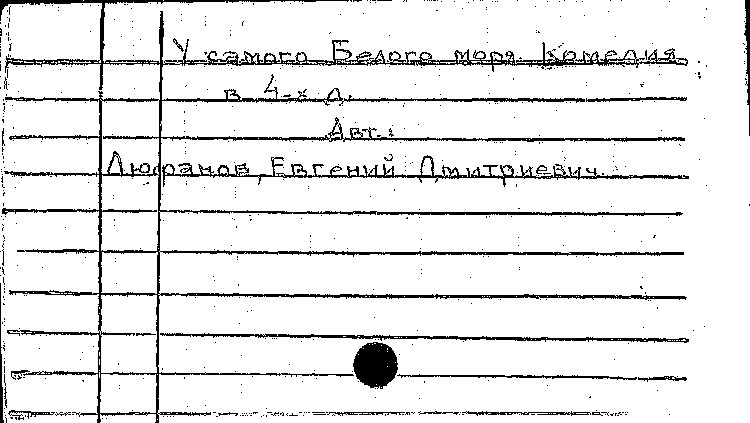 У самого Белого моря. Комедия
в 4-х д.
Авт.:
Люфанов, Евгений Дмитриевич.